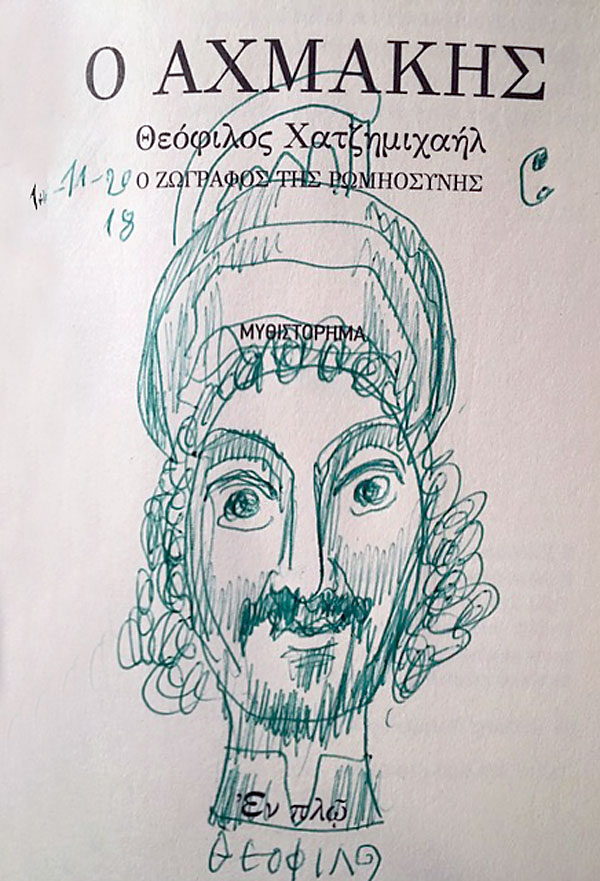 Ο ΑΧΜΑΚΗΣ
Θεόφιλος Χατζημιχαήλ
Ο ΖΩΓΡΑΦΟΣ ΤΗΣ ΡΩΜΗΟΣΥΝΗΣ
-11-20
18
ΜΥΘΙΣΤΟΡΗΜΑ
Ἐν πλῷ
ΘΕΟΦΙΛΟ